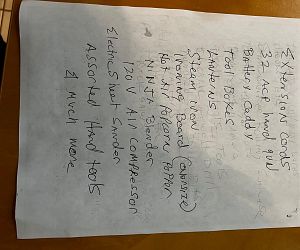 Extension cords
32 ACP hand gun
Battery caddy
Tool Boxes
LANTERNS
Steam Iron
Ironing Board (
Hot Air Popcorn Popper
NINJA Blender
120 V AIR COMPRESSOR
Electric Sheet Sander
Assorted Hand tools
& Much more